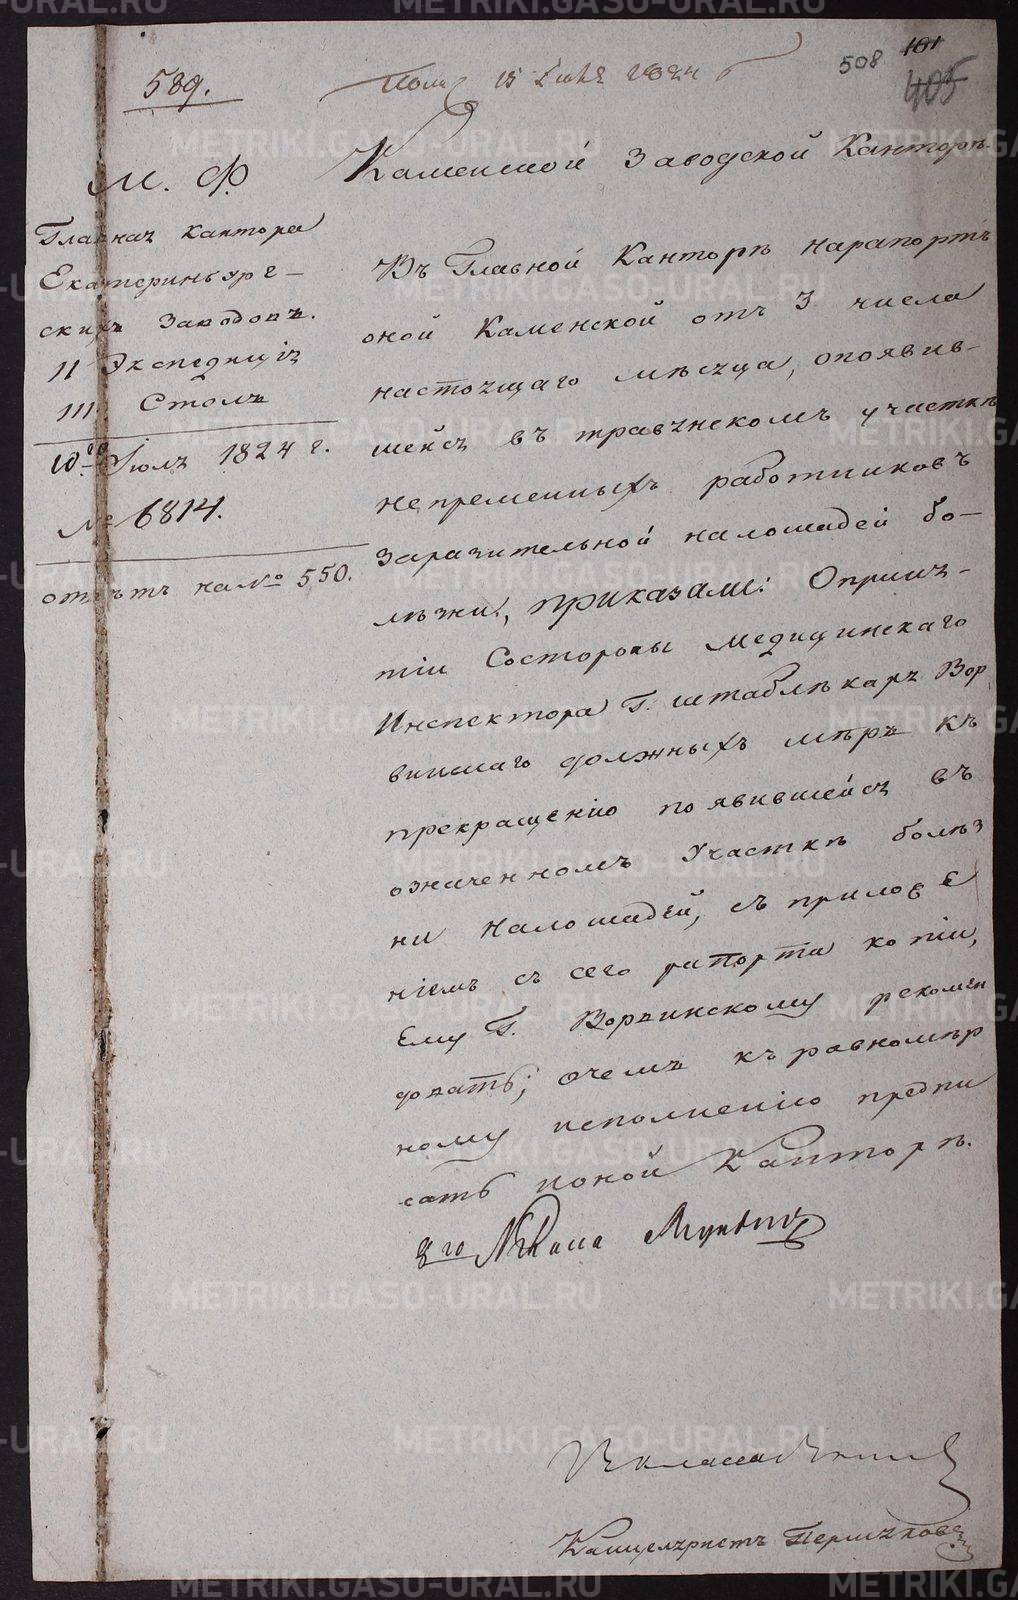 508 101
405
589.
Пол: 15 Июля 1824
М. Ф.
Главная кантора
Екатеринбург-
скихъ заводовъ.
II Экспедицiя
III Столъ
10го Iюля 1824 г.
№ 6814.
отвѣтъ на № 550.
Каменской Заводской Канторѣ.
Въ Главной Канторѣ нарапортъ
оной Каменской отъ 3 числа
настоящаго мѣсяца, опоявив-
шейся въ травянскомъ участкѣ
непременныхъ работниковъ
заразительной налошадей бо-
лѣзни, приказали: Опринѧ-
тiи Состороны медицинскаго
Инспектора Г. штаблѣкаря Вор
винскаго должныхъ мѣръ къ
прекращенiю появившейся въ
означенномъ Участкѣ болѣз
ни налошадей, съ приложе
нiемъ съ сего рапорта копiи,
Ему Г. Ворвинскому рекомен
довать; очемъ къ равномѣр
ному исполненiю предпи
сать ионой Канторѣ.
8го класса
класса
Канцеляристъ Пермяковъ
METRIKI.GASO-URAL.RU